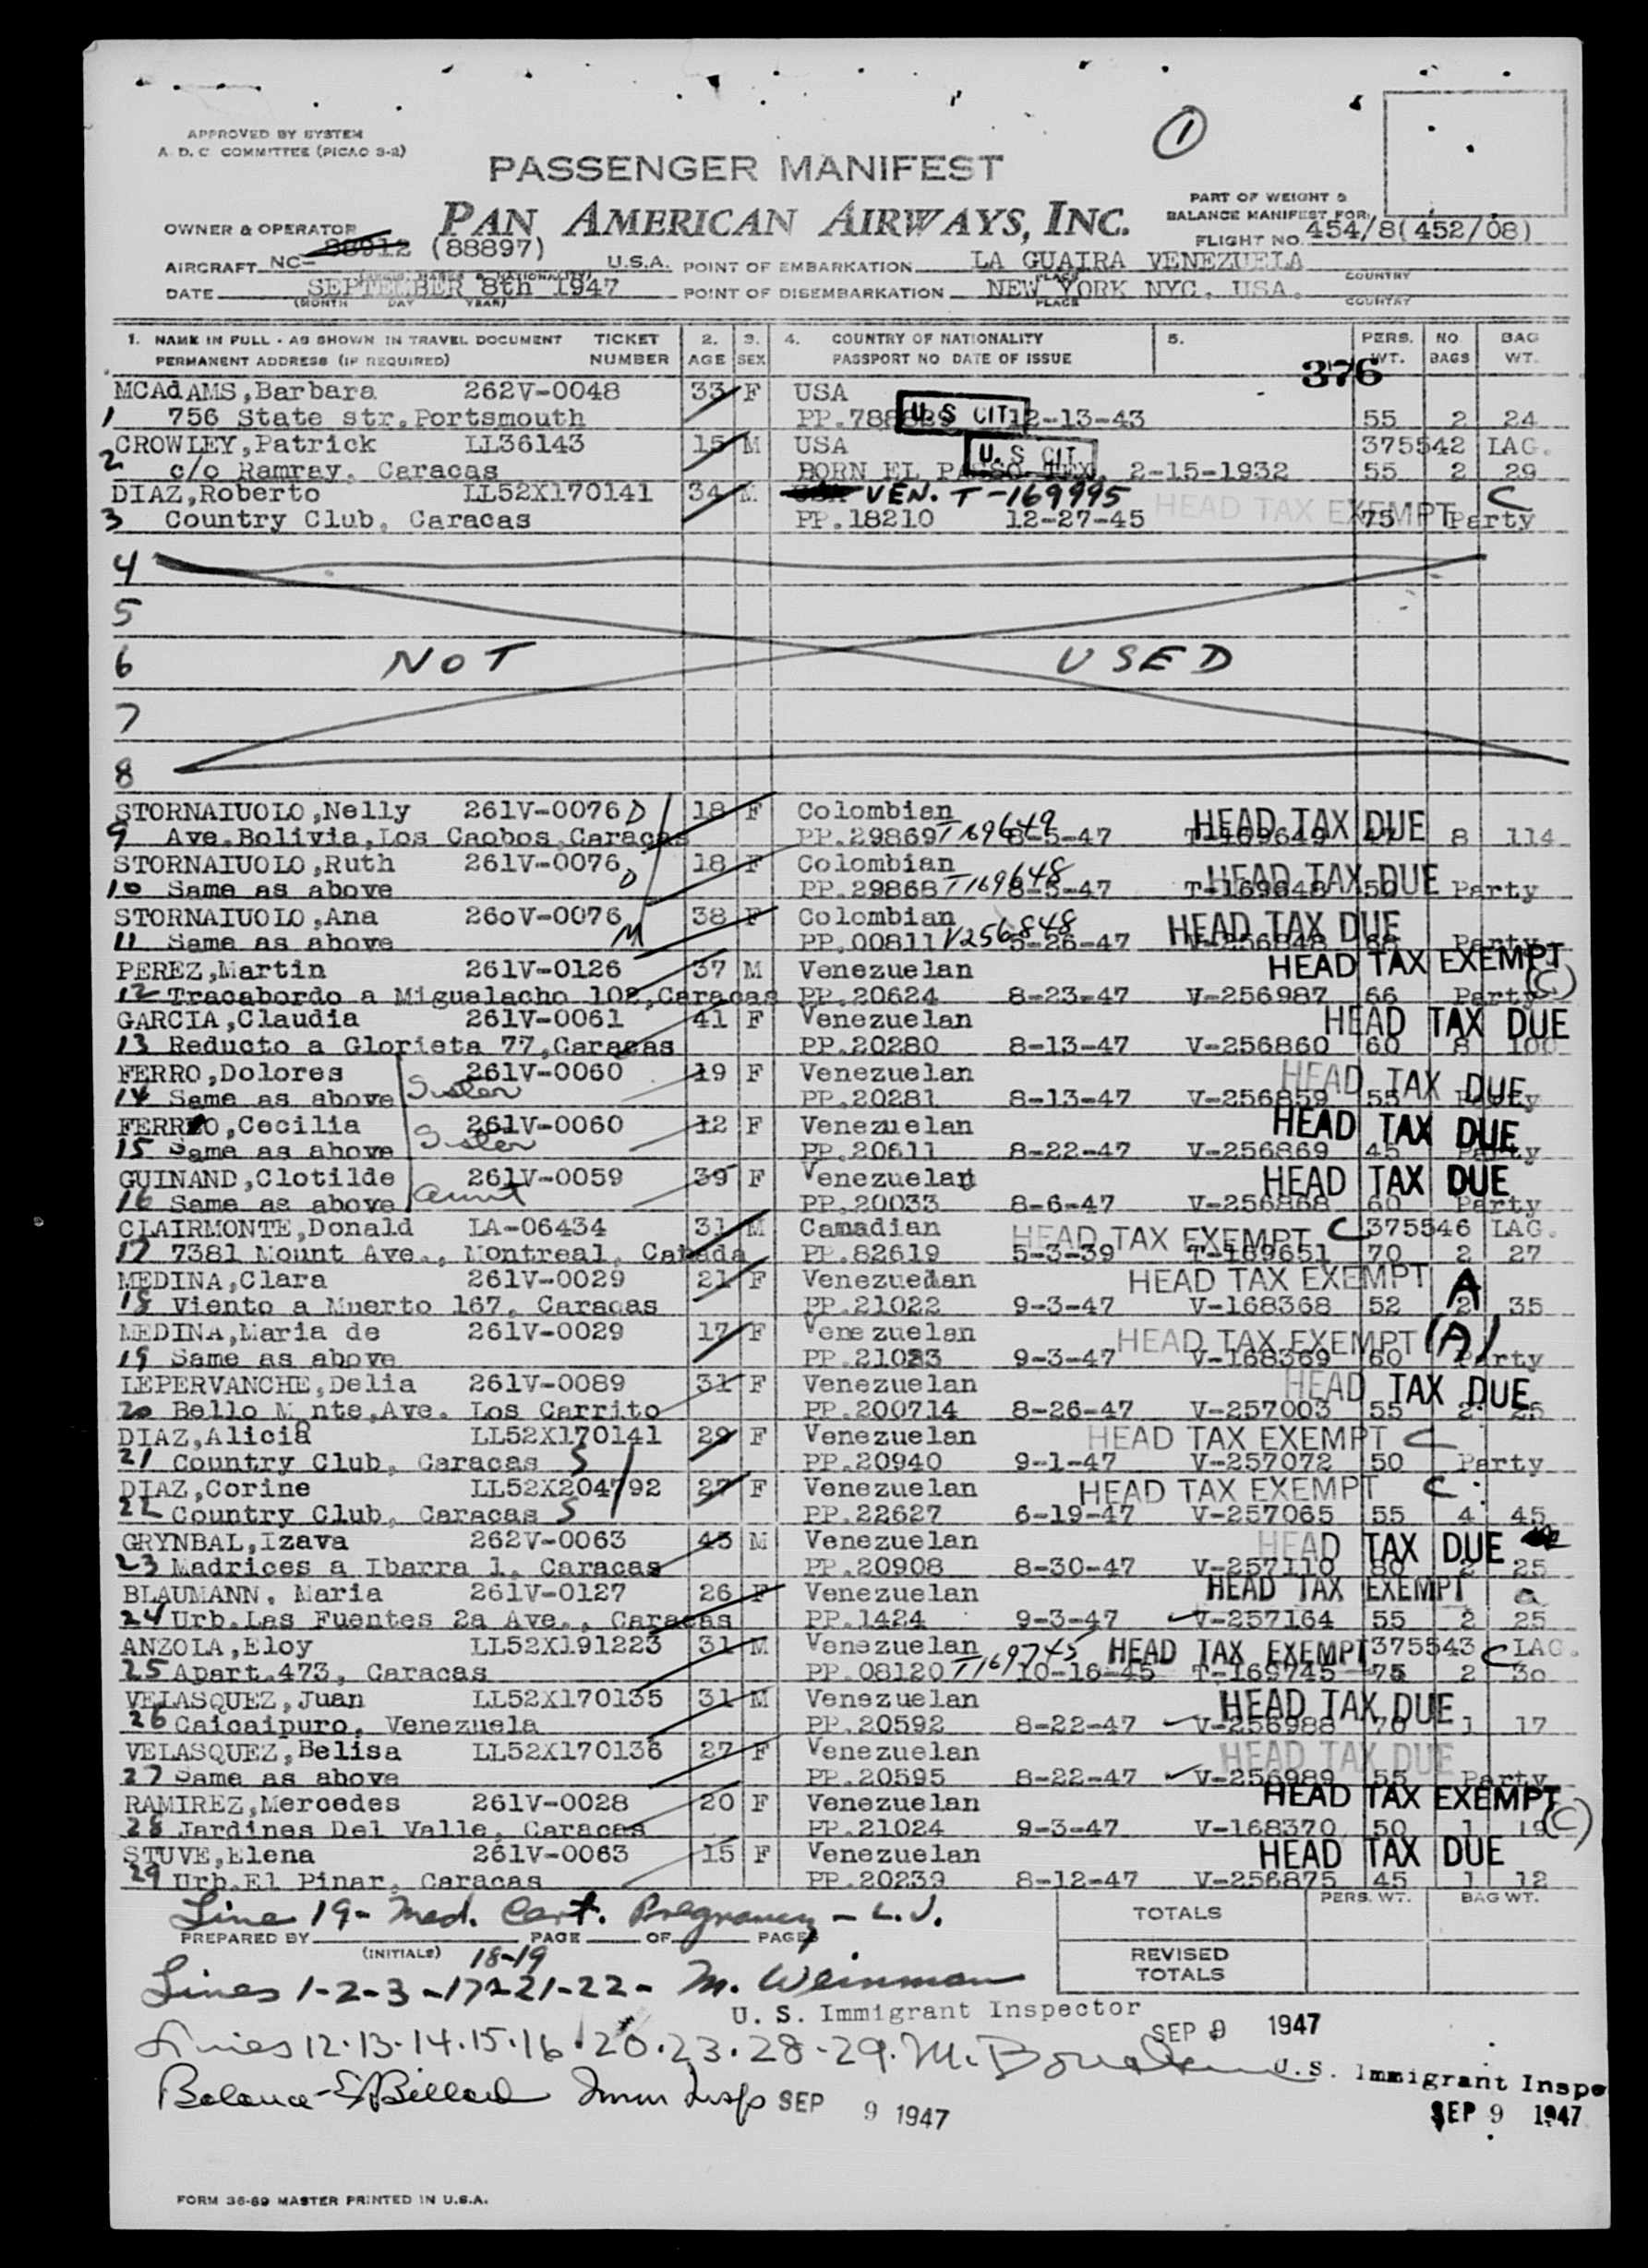 APPROVED BY SYSTEM
A. D. C. COMMITTEE (PICAO 3-2)
1
PASSENGER MANIFEST
PART OF WEIGHT &
BALANCE MANIFEST FOR:
OWNER & OPERATOR PAN AMERICAN AIRWAYS, INC.
FLIGHT NO. 454/8(452/08)
AIRCRAFT NC- 88912 (88897) U.S.A. POINT OF EMBARKATION LA GUAIRA VENEZUELA
PLACE COUNTRY
DATE SEPTEMBER 8th 1947 POINT OF DISEMBARKATION NEW YORK NYC, USA.
(MONTH DAY YEAR) PLACE COUNTRY
1. NAME IN FULL - AS SHOWN IN TRAVEL DOCUMENT TICKET 2. 3. 4. COUNTRY OF NATIONALITY 5. PERS. NO BAG
PERMANENT ADDRESS (IF REQUIRED) NUMBER AGE SEX PASSPORT NO DATE OF ISSUE WT. BAGS WT.
376
MCAdAMS,Barbara 262V-0048 33 F USA
1 756 State str.Portsmouth PP. U.S CIT 12-13-43 55 2 24
2 CROWLEY,Patrick LL36143 15 M USA U. S CIT. 375542 LAG.
c/o Ramray, Caracas BORN EL PASSO TEX, 2-15-1932 55 2 29
DIAZ,Roberto LL52X170141 34 M VEN. T-169995 C
3 Country Club, Caracas PP.18210 12-27-45 HEAD TAX EXEMPT 75 Party
4
5
6 NOT USED
7
8
STORNAIUOLO,Nelly 261V-0076 D 18 F Colombian HEAD TAX DUE
9 Ave.Bolivia,Los Caobos,Caracas PP.29869 T169649 8-5-47 T-169649 47 8 114
STORNAIUOLO,Ruth 261V-0076 D 18 F Colombian HEAD TAX DUE
10 Same as above PP.29868 T169648 8-5-47 T-169648 50 Party
STORNAIUOLO,Ana 26oV-0076 M 38 F Colombian HEAD TAX DUE
11 Same as above PP.00811 V256848 5-26-47 V-256848 Party
PEREZ,Martin 261V-0126 37 M Venezuelan HEAD TAX EXEMPT (C)
12 Tracabordo a Miguelacho 102,Caracas PP.20624 8-23-47 V-256987 66 Party
GARCIA,Claudia 261V-0061 41 F Venezuelan HEAD TAX DUE
13 Reducto a Glorieta 77,Caracas PP.20280 8-13-47 V-256860 60 8 100
FERRO,Dolores 261V-0060 19 F Venezuelan HEAD TAX DUE
14 Same as above Sister PP.20281 8-13-47 V-256859 55 Party
FERRO,Cecilia 261V-0060 12 F Venezuelan HEAD TAX DUE
15 Same as above Sister PP.20611 8-22-47 V-256869 45 Party
GUINAND,Clotilde 261V-0059 39 F Venezuelan HEAD TAX DUE
16 Same as above Aunt PP.20033 8-6-47 V-256868 60 Party
CLAIRMONTE,Donald LA-06434 31 M Canadian HEAD TAX EXEMPT C 375546 LAG.
17 7381 Mount Ave., Montreal, Canada PP.82619 5-3-39 T-169651 70 2 27
MEDINA,Clara 261V-0029 21 F Venezuedan HEAD TAX EXEMPT A
18 Viento a Muerto 167, Caracas PP.21022 9-3-47 V-168368 52 2 35
MEDINA,Maria de 261V-0029 17 F Venezuelan HEAD TAX EXEMPT (A)
19 Same as above PP.21023 9-3-47 V-168369 60 Party
LEPERVANCHE,Delia 261V-0089 31 F Venezuelan HEAD TAX DUE
20 Bello M nte,Ave. Los Carrito PP.200714 8-26-47 V-257003 55 2 25
DIAZ,Alicia LL52X170141 29 F Venezuelan HEAD TAX EXEMPT C
21 Country Club, Caracas S PP.20940 9-1-47 V-257072 50 Party
DIAZ,Corine LL52X204792 27 F Venezuelan HEAD TAX EXEMPT C
22 Country Club, Caracas S PP.22627 6-19-47 V-257065 55 4 45
GRYNBAL,Izava 262V-0063 45 M Venezuelan HEAD TAX DUE
23 Madrices a Ibarra 1, Caracas PP.20908 8-30-47 V-257110 80 2 25
BLAUMANN, Maria 261V-0127 26 F Venezuelan HEAD TAX EXEMPT a
24 Urb.Las Fuentes 2a Ave., Caracas PP.1424 9-3-47 V-257164 55 2 25
ANZOLA,Eloy LL52X191223 31 M Venezuelan HEAD TAX EXEMPT 375543 C LAG.
25 Apart.473, Caracas PP.08120 T169745 10-16-45 T-169745 75 2 30
VELASQUEZ,Juan LL52X170135 31 M Venezuelan HEAD TAX DUE
26 Caicaipuro, Venezuela PP.20592 8-22-47 V-256988 70 1 17
VELASQUEZ,Belisa LL52X170136 27 F Venezuelan HEAD TAX DUE
27 Same as above PP.20595 8-22-47 V-256989 55 Party
RAMIREZ,Mercedes 261V-0028 20 F Venezuelan HEAD TAX EXEMPT (C)
28 Jardines Del Valle, Caracas PP.21024 9-3-47 V-168370 50 1 19
STUVE,Elena 261V-0063 15 F Venezuelan HEAD TAX DUE
29 Urb.El Pinar, Caracas PP.20239 8-12-47 V-256875 45 1 12
PERS. WT. BAG WT.
Line 19- Med. Cert. Pregnancy - L.J.
TOTALS
PREPARED BY PAGE OF PAGES
(INITIALS)
REVISED
TOTALS
18-19
Lines 1-2-3-17-21-22- M. Weinman
U. S. Immigrant Inspector
SEP 9 1947
Lines 12.13.14.15.16.20.23.28-29. M.
U.S. Immigrant Inspe
Balance - Billard Imm Insp SEP 9 1947
SEP 9 1947
FORM 36-69 MASTER PRINTED IN U.S.A.